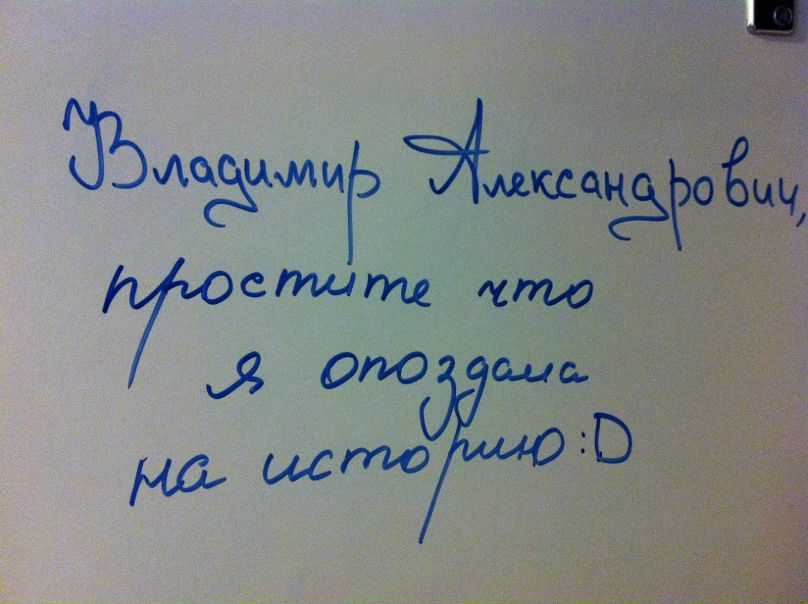 Владимир Александрович,
простите что
я опоздала
на историю :D